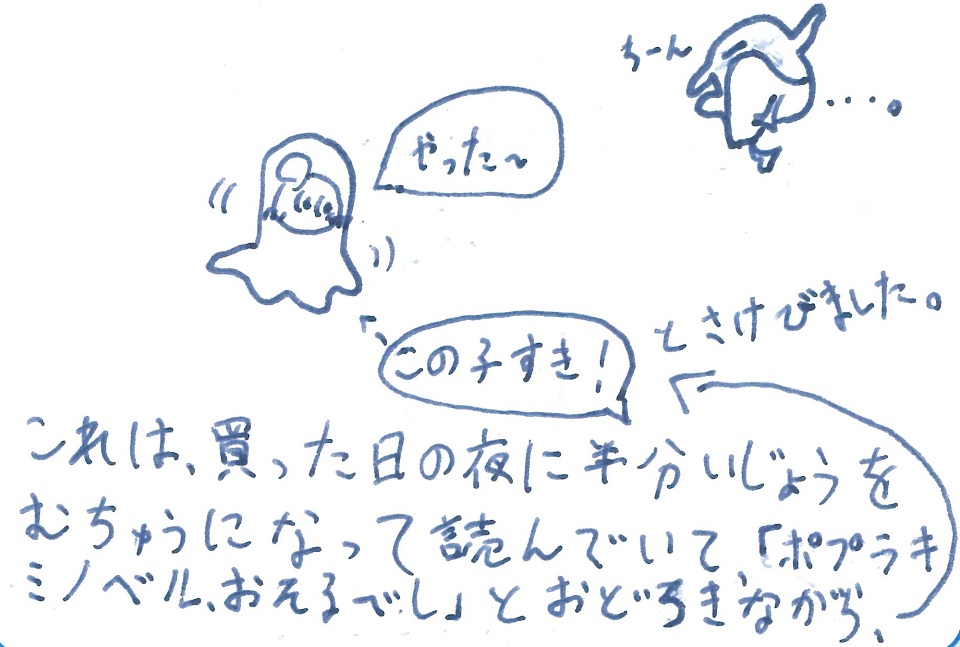 ちーん
・・・。
やった～
「この子すき!
とさけびました。
これは、買った日の夜に半分いじょうを
むちゅうになって読んでいて、「ポプラキ
ミノベル、おそるべし」とおどろきながら、